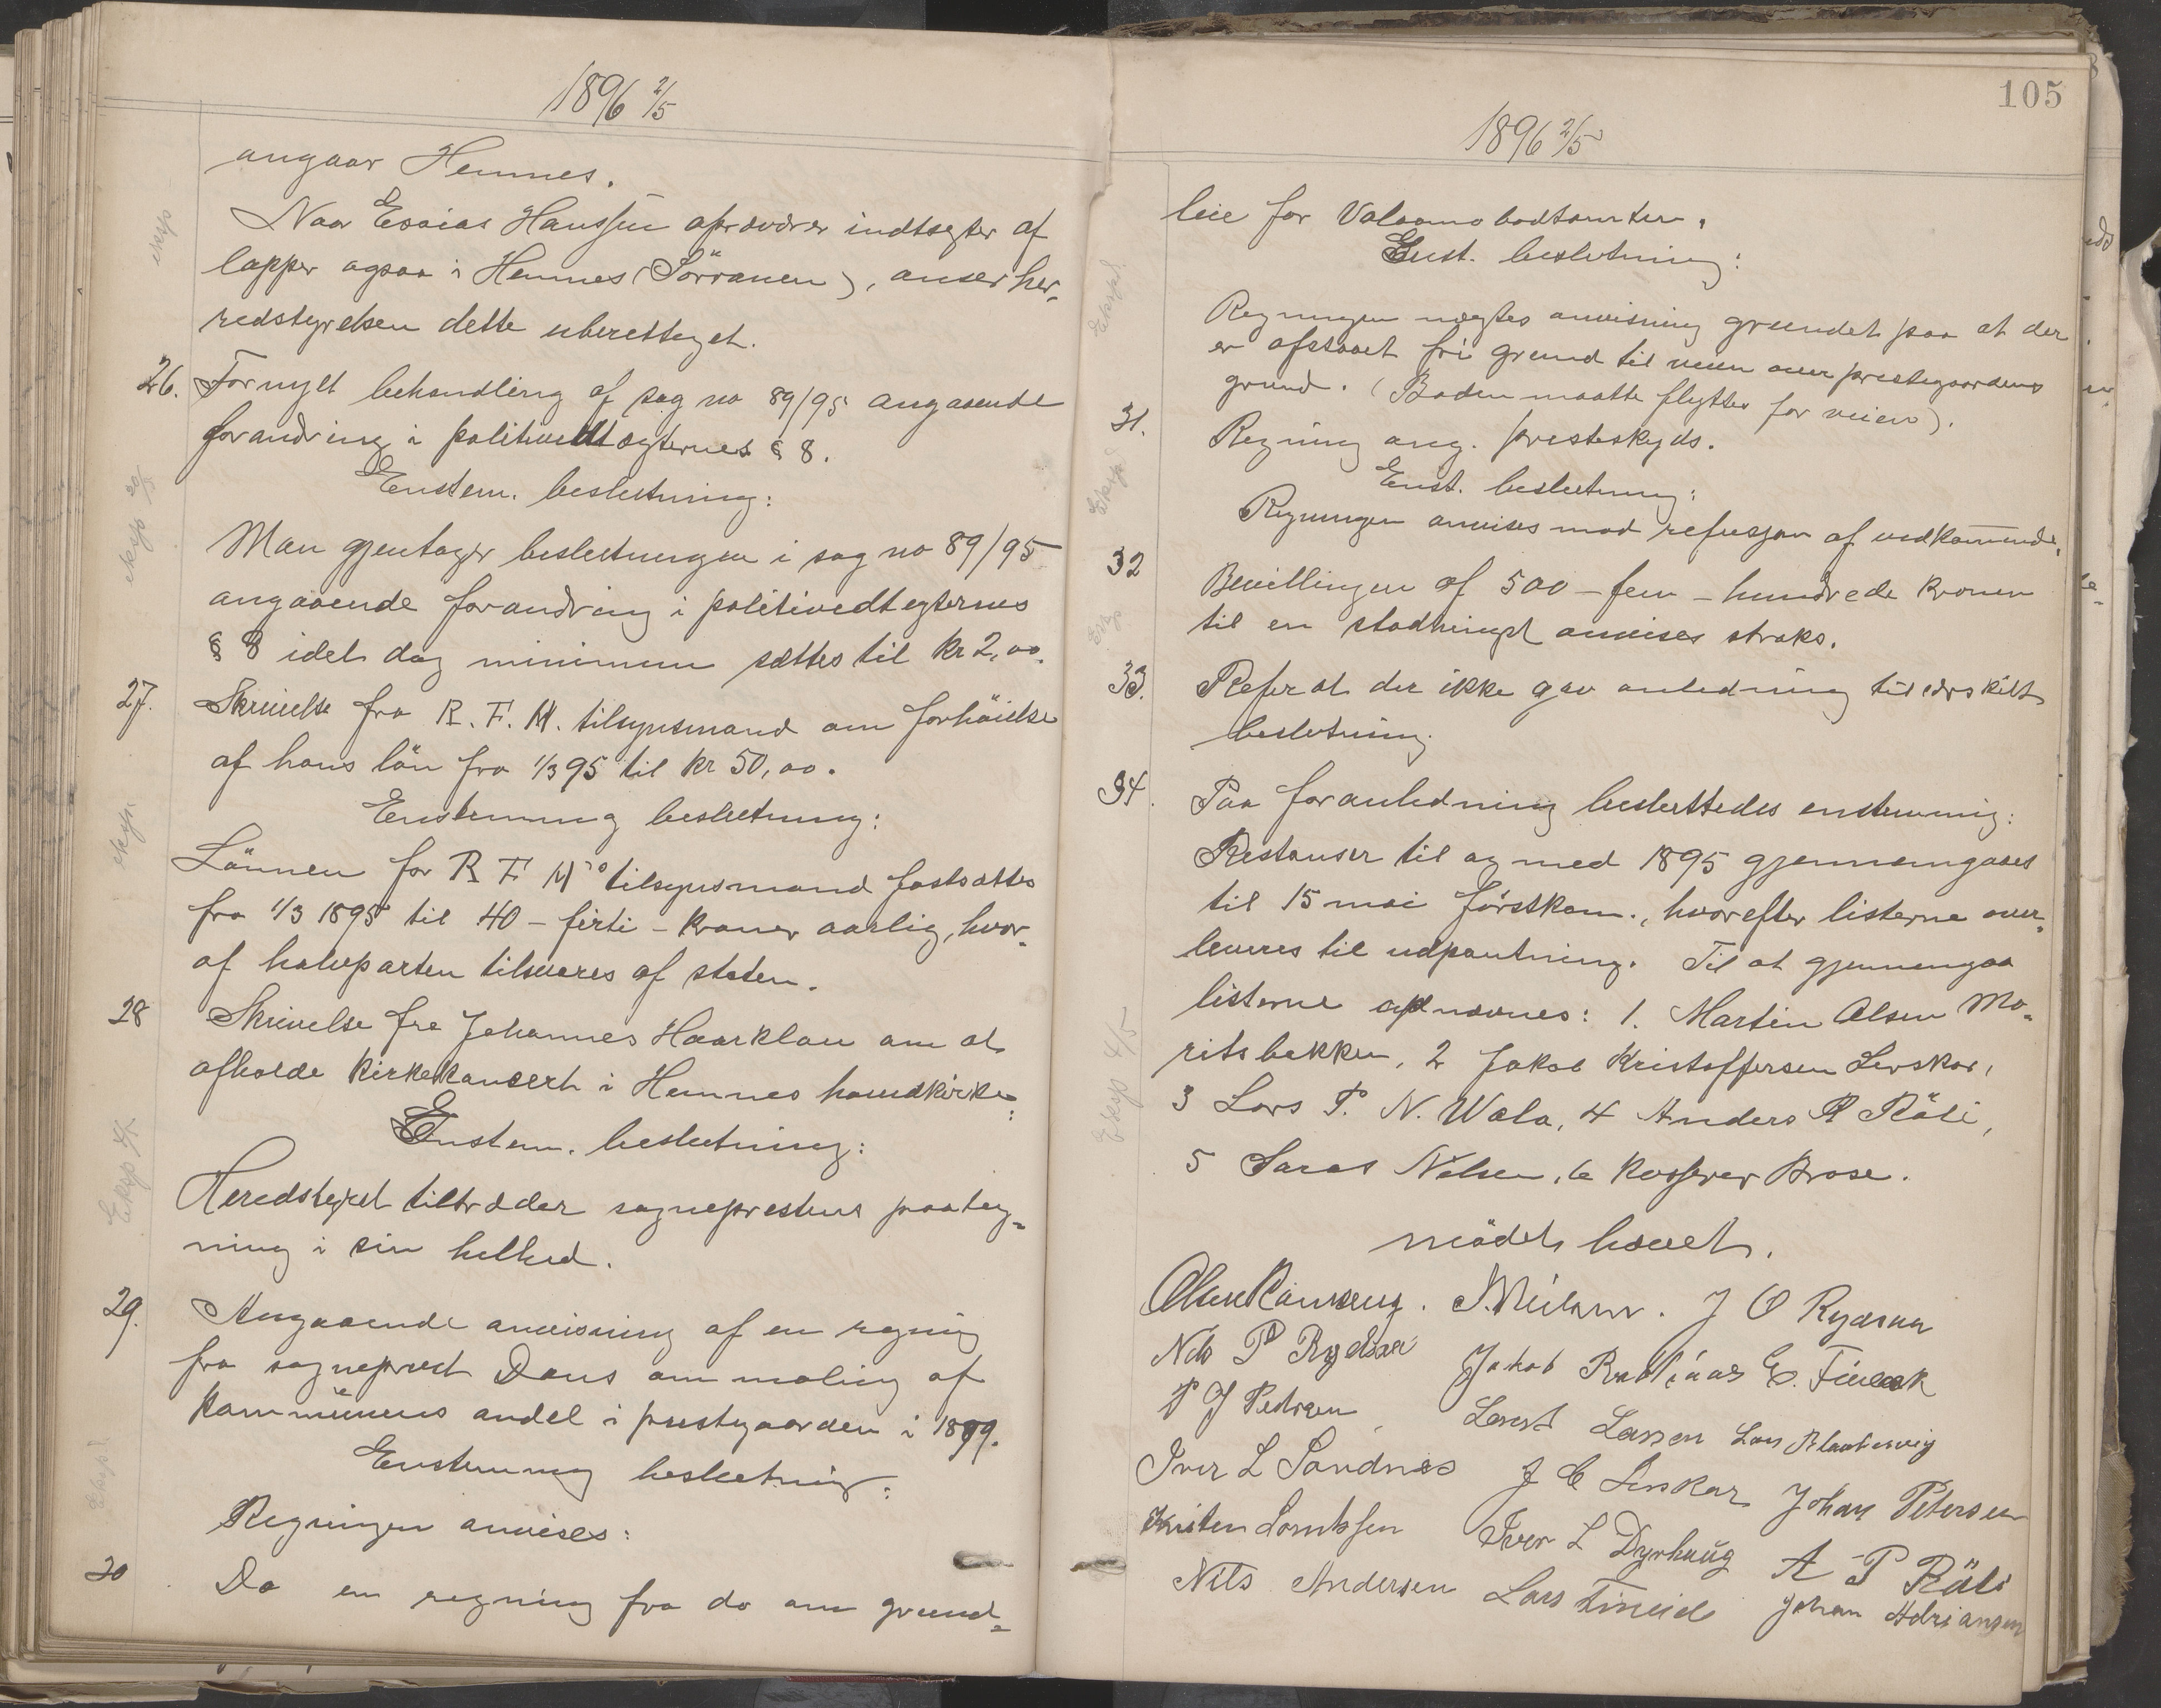 1896 2/5
angaar Hemnes.
Naar Esaias Hanssen opkræver indtægter af
lapper ogsaa i Hemnes (Sörranen), anser her-
redstyrelsen dette uberettiget.
26. Fornyet behandling af sag no 89/95 angaaende
forandring i politivedtægternes § 8.
Enstem. beslutning:
Man gjentager beslutningen i sag no 89/95
angaaende forandring i politivedtegternes
§ 8 idet dog minimum sættes til kr 2,00.
27. Skrivelse fra R. F. M. tilsynsmand om forhöielse
af hans lön fra 1/3 95 til kr 50,00.
Enstemmig beslutning:
Lönnen for R F M's tilsynsmand fastsættes
fra 1/3 1895 til 40 - firti - kroner aarlig, hvor-
af halvparten tilsvares af staten.
28 Skrivelse fra Johannes Haarklou om at
afholde kirkekonsert i Hemnes hovedkirke:
Enstem. beslutning:
Heredstyret tiltræder sogneprestens paateg-
ning i sin helhed.
29. Angaaende anvisning af en regning
fra sogneprest Daus om maling af
kommunens andel i prestegaarden i 1899.
Enstemmig beslutning:
Regningen anvises:
30 Do en regning fra do om grund-
eksp
eksp 20/5
eksp.
Eksp
Eksp.
105
1896 2/5
leie for Valaamo bodtomten.
Enst. beslutning:
Regningen nægtes anvisning grundet paa at der
er afstaaet fri grund til veien over prestegaardens
grund. (Boden maatte flyttes for veien).
31. Regning ang. presteskyds.
Enst. beslutning:
Regningen anvises mod refusjon af vedkommende.
32 Bevillingen af 500 - fem - hundrede kroner
til en stadhingst anvises straks.
33. Referat der ikke gav anledning til særskilt
beslutning.
34. Paa foranledning besluttedes enstemmig:
Restanser til og med 1895 gjennemgaaes
til 15 mai förstkom., hvorefter listerne over-
leveres til udpantning. Til at gjennemgaa
listerne opnævnes: 1. Martin Olsen Mo-
ritsbakken, 2 Jakob Kristoffersen Levskar,
3 Lars P. N. Wala, 4 Anders P Röli,
5 Saras Nilsen, 6 kasserer Brose.
mödet hævet.
Eksp
Eksp
Eksp
Eksp 4/5
Olsen Ranseng. J O Rydsaa
Nils P Rydsaa Jakob E.
P J Pedersen Larsen Lars
Iver L Sandnes J C Levskar Johan Petersen
Kristen Lorntsen Iver L Dyrhaug A P Röli
Nils Andersen Lars Fineide Johan Adriansen